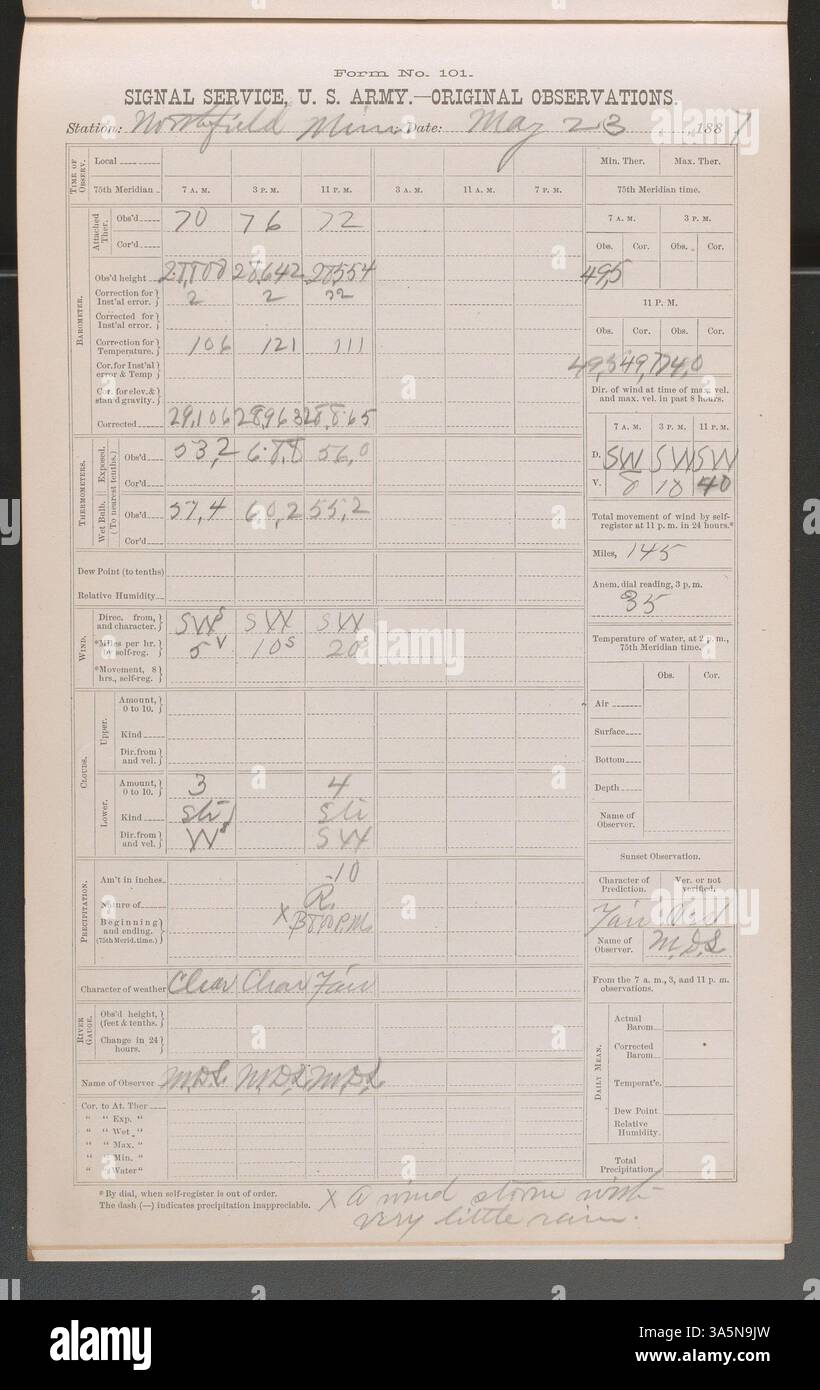 Form No. 101.
SIGNAL SERVICE, U. S. ARMY.—ORIGINAL OBSERVATIONS.
Station: Northfield Minn Date: May 23, 1887
TIME OF OBSERV.
Local
75th Meridian 7 A. M. 3 P. M. 11 P. M. 3 A. M. 11 A. M. 7 P. M.
BAROMETER.
Attached Ther.
Obs'd 70 76 72
Cor'd
Obs'd height 28,642 28,554
Correction for Inst'al error. 2 2
Corrected for Inst'al error.
Correction for Temperature. 106 121 111
Cor. for Inst'al error & Temp
Cor. for elev. & stan'd gravity.
Corrected 29,106 28,963 28,865
THERMOMETERS.
Exposed.
(To nearest tenths.)
Obs'd 53,2 68,8 56,0
Cor'd
Wet Bulb.
Obs'd 57,4 60,2 55,2
Cor'd
Dew Point (to tenths)
Relative Humidity
WIND.
Direc. from, and character. SW S SW SW
*Miles per hr. by self-reg. 5 V 10 S 20
*Movement, 8 hrs., self-reg.
CLOUDS.
Upper.
Amount, 0 to 10.
Kind
Dir. from and vel.
Lower.
Amount, 0 to 10. 3 4
Kind Str Str
Dir. from and vel. W SW
PRECIPITATION.
Am't in inches .10
Nature of R.
Beginning and ending. (75th Merid. time.) X P.M.
Character of weather Clear Clear Fair
RIVER GAUGE.
Obs'd height, (feet & tenths.
Change in 24 hours.
Name of Observer M.D.S. M.D.S. M.D.S.
Cor. to At. Ther
" " Exp. "
" " Wet "
" " Max. "
" " Min. "
" " Water "
* By dial, when self-register is out of order.
The dash (—) indicates precipitation inappreciable.
X A wind storm with
very little rain.
Min. Ther. Max. Ther.
75th Meridian time.
7 A. M. 3 P. M.
Obs. Cor. Obs. Cor.
49,5
11 P. M.
Obs. Cor. Obs. Cor.
49,5 49,7 74,0
Dir. of wind at time of max. vel. and max. vel. in past 8 hours.
7 A. M. 3 P. M. 11 P. M.
D. SW SW SW
V. 8 18 40
Total movement of wind by self-register at 11 p. m. in 24 hours.*
Miles, 145
Anem. dial reading, 3 p. m.
35
Temperature of water, at 2 p. m., 75th Meridian time.
Obs. Cor.
Air
Surface
Bottom
Depth
Name of Observer.
Sunset Observation.
Character of Prediction. Ver. or not verified.
Fair
Name of Observer. M.D.S.
From the 7 a. m., 3, and 11 p. m. observations.
DAILY MEAN.
Actual Barom
Corrected Barom
Temperat'e.
Dew Point
Relative Humidity.
Total Precipitation.
alamy
a
Image ID: 3A5N9JW
www.alamy.com